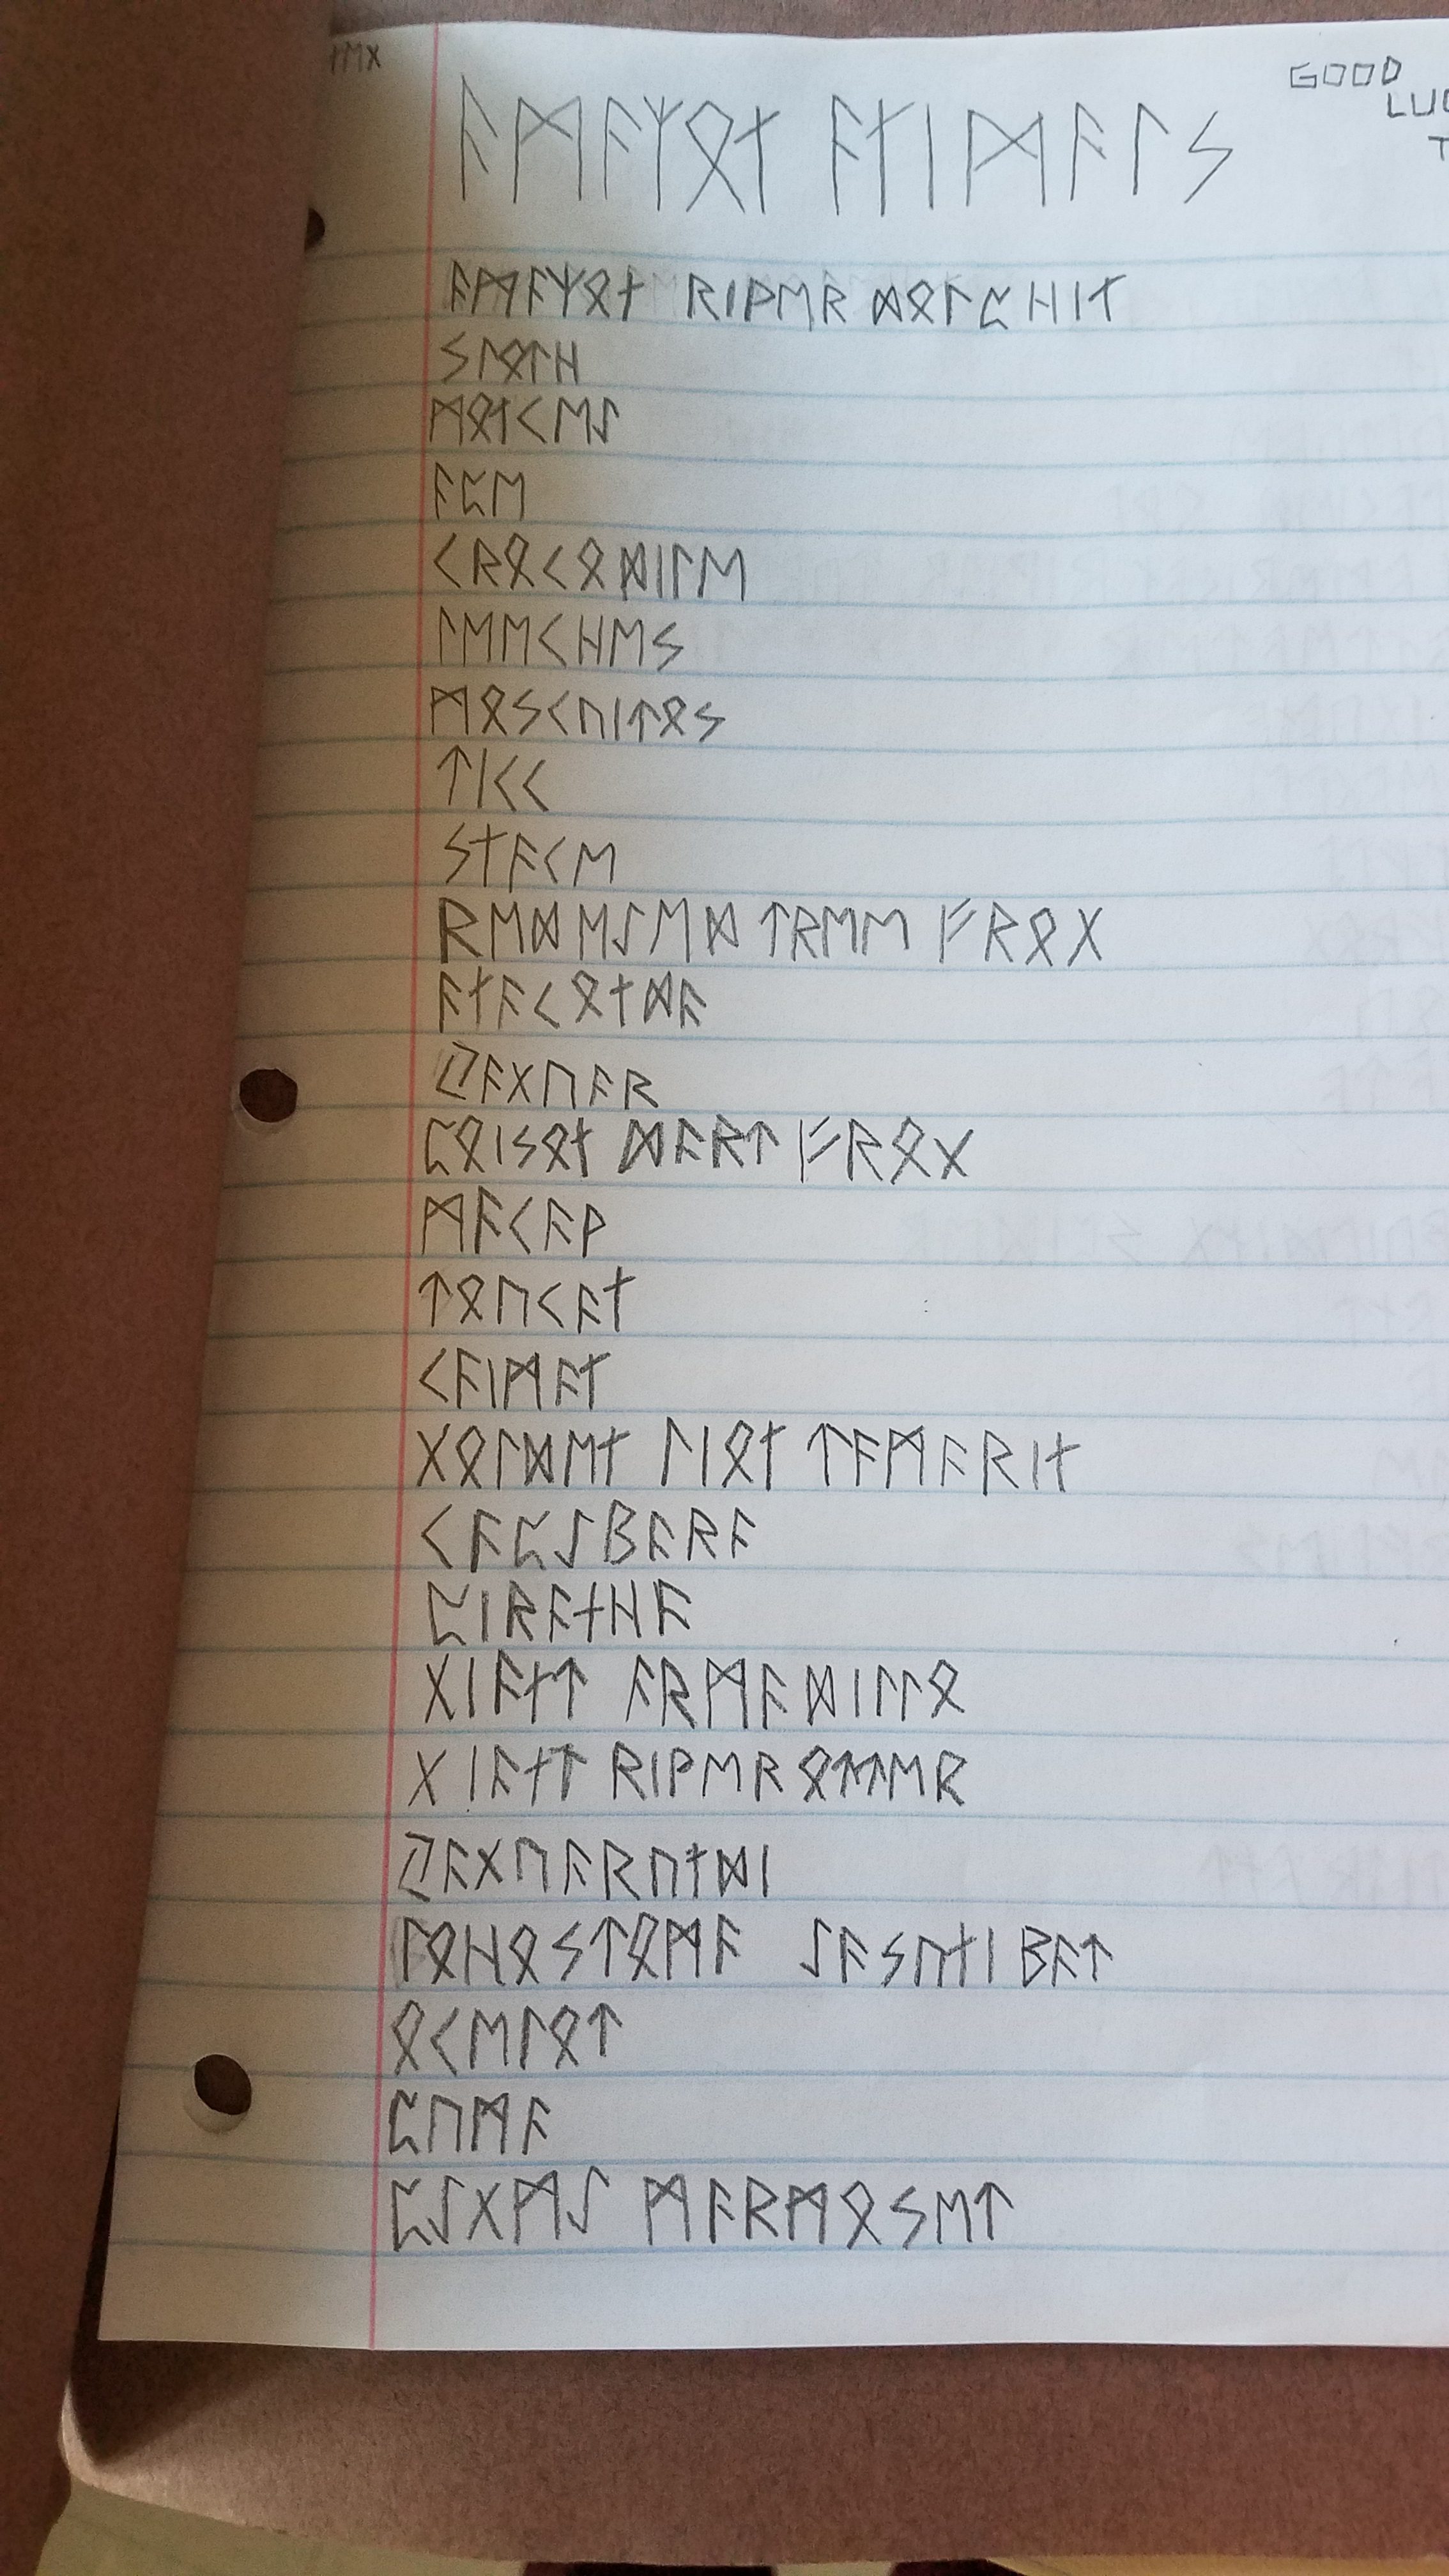 GOOD
ᚨᛗᚨᛉᛟᚾ ᚨᚾᛁᛗᚨᛚᛊ
ᚨᛗᚨᛉᛟᚾ ᚱᛁᚹᛖᚱ ᛞᛟᛚᛈᚺᛁᚾ
ᛊᛚᛟᛏᚺ
ᛗᛟᚾᚲᛖᛇ
ᚨᛈᛖ
ᚲᚱᛟᚲᛟᛞᛁᛚᛖ
ᛚᛖᛖᚲᚺᛖᛊ
ᛗᛟᛊᚲᚢᛁᛏᛟᛊ
ᛏᛁᚲᚲ
ᛊᚾᚨᚲᛖ
ᚱᛖᛞ ᛖᛇᛖᛞ ᛏᚱᛖᛖ ᚠᚱᛟᚷ
ᚨᚾᚨᚲᛟᚾᛞᚨ
ᛃᚨᚷᚢᚨᚱ
ᛈᛟᛁᛊᛟᚾ ᛞᚨᚱᛏ ᚠᚱᛟᚷ
ᛗᚨᚲᚨᚹ
ᛏᛟᚢᚲᚨᚾ
ᚲᚨᛁᛗᚨᚾ
ᚷᛟᛚᛞᛖᚾ ᛚᛁᛟᚾ ᛏᚨᛗᚨᚱᛁᚾ
ᚲᚨᛈᛇᛒᚨᚱᚨ
ᛈᛁᚱᚨᚾᚺᚨ
ᚷᛁᚨᚾᛏ ᚨᚱᛗᚨᛞᛁᛚᛚᛟ
ᚷᛁᚨᚾᛏ ᚱᛁᚹᛖᚱ ᛟᛏᛏᛖᚱ
ᛃᚨᚷᚢᚨᚱᚢᚾᛞᛁ
ᛚᛟᚺᛟᛊᛏᛟᛗᚨ ᛇᚨᛊᚢᚾᛁ ᛒᚨᛏ
ᛟᚲᛖᛚᛟᛏ
ᛈᚢᛗᚨ
ᛈᛇᚷᛗᛇ ᛗᚨᚱᛗᛟᛊᛖᛏ